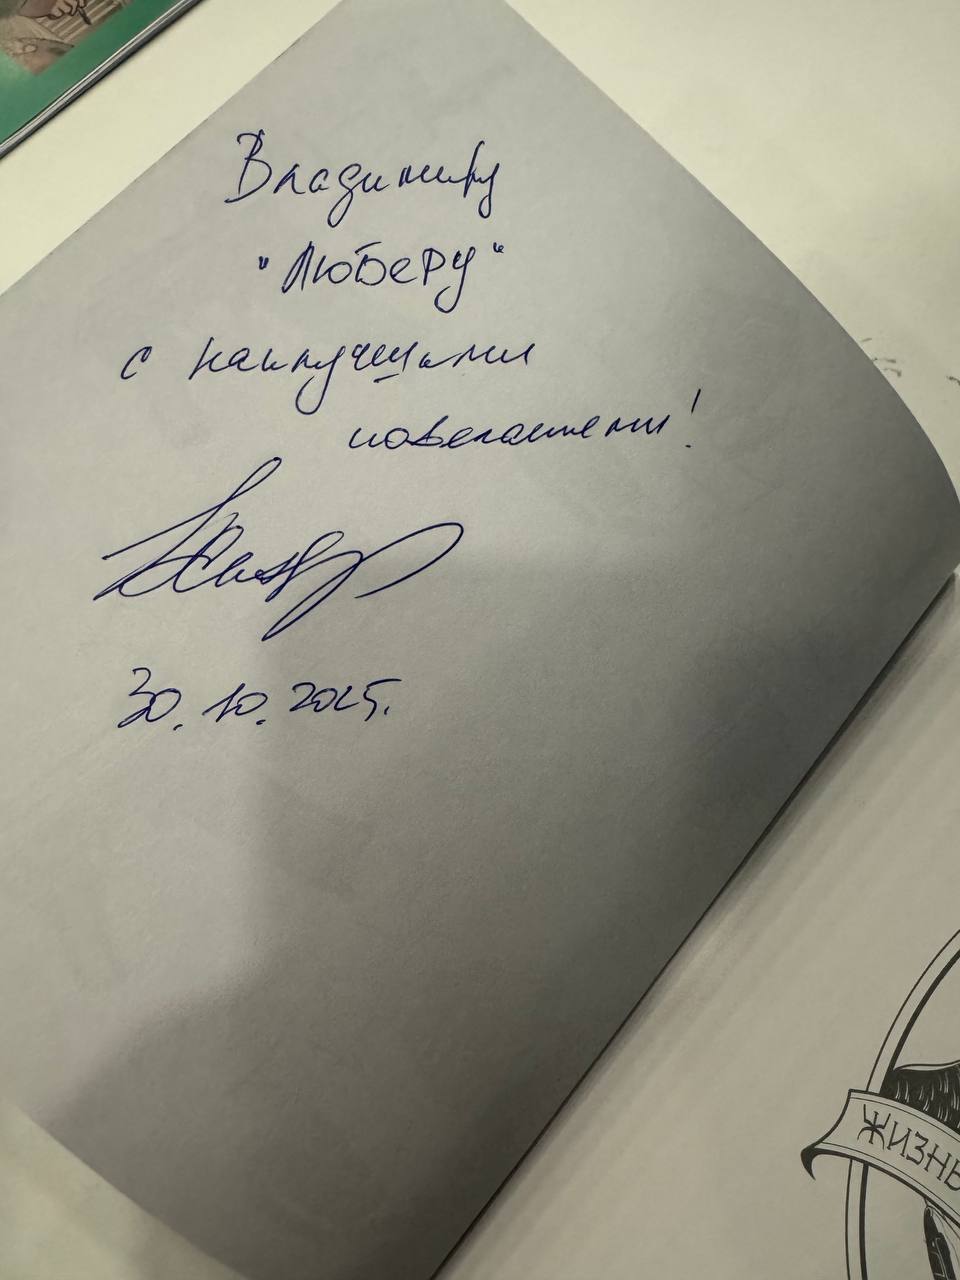 Владимиру
"Люберу"
с наилучшими
пожеланиями!
30.10.2025.
ЖИЗНЬ